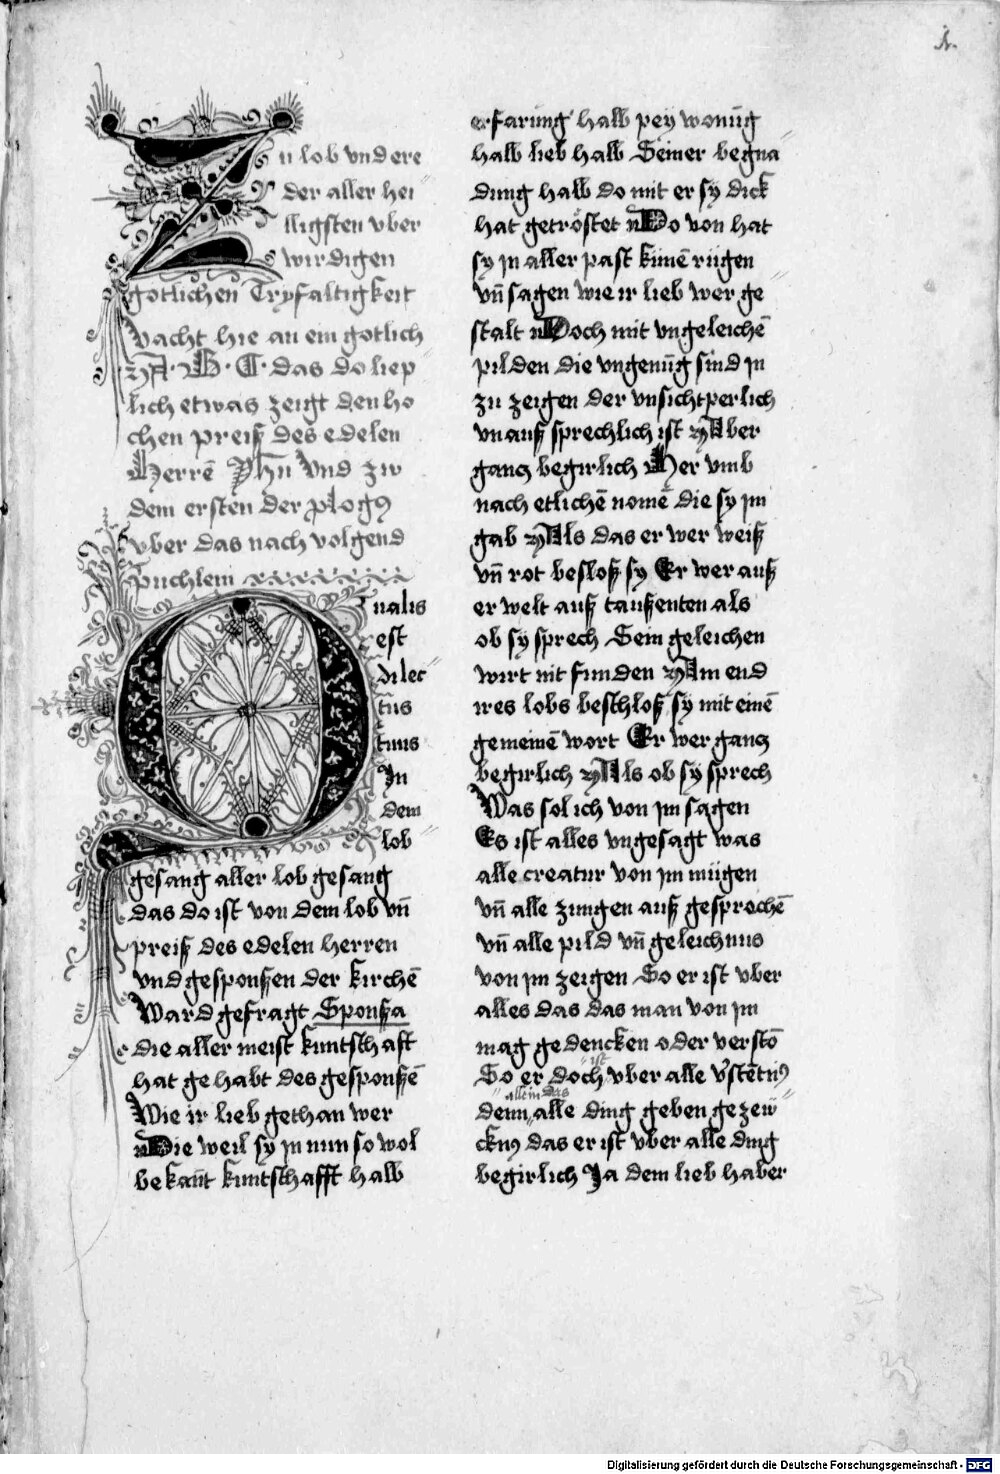 1.
Zu lob vnd ere
der aller hei
lligsten vber
wirdigen
gotlichen Tryfaltigkeit
vacht hie an ein gotlich
A · B · C · das do liep
lich etwas zeigt den ho
chen preiß des edelen
Herrē Jhu Vnd zu
dem ersten der plogꝰ
vber das nach volgend
puchlein
Qualis
est
dilec
tūs
tuus
In
dem
lob
gesang aller lob gesang
das do ist von dem lob vn̄
preiß des edelen herren
vnd gesponßen der kirchē
Ward gefragt Sponßa
die aller meist kuntschaft
hat gehabt des gesponßē
Wie ir lieb gethan wer
Die weil sy in nun so wol
bekan̄t kuntschafft halb
erfarung halb pey wonūg
halb lieb halb Seiner begna
dung halb do mit er sy dick
hat getröstet Do von hat
sy in aller past kūnē rügen
vn̄ sagen wie ir lieb wer ge
stalt Doch mit vngeleichē
pilden die vngenūg sind in
zu zeigen der vnsichtperlich
vnauß sprechlich ist Aber
gancz begirlich Her vmb
nach etlichē nomē die sy im
gab Als das er wer weiß
vn̄ rot besloß sy Er wer auß
er welt auß taußenten als
ob sy sprech Sein geleichen
wirt nit funden Am end
ires lobs beschloß sy mit einē
gemeinē wort Er wer gancz
begirlich Als ob sy sprech
Was sol ich von im sagen
Es ist alles vngesagt was
alle creatur von im mügen
vn̄ alle zungen auß gesprochē
vn̄ alle pild vn̄ geleichnus
von im zeigen So er ist vber
alles das das man von im
mag gedencken oder verstō
ist
So er doch vber alle v̄stētnꝰ
allein das
denn alle ding geben gezew
cknꝰ das er ist vber alle ding
begirlich Ja dem lieb haber
Digitalisierung gefördert durch die Deutsche Forschungsgemeinschaft - DFG